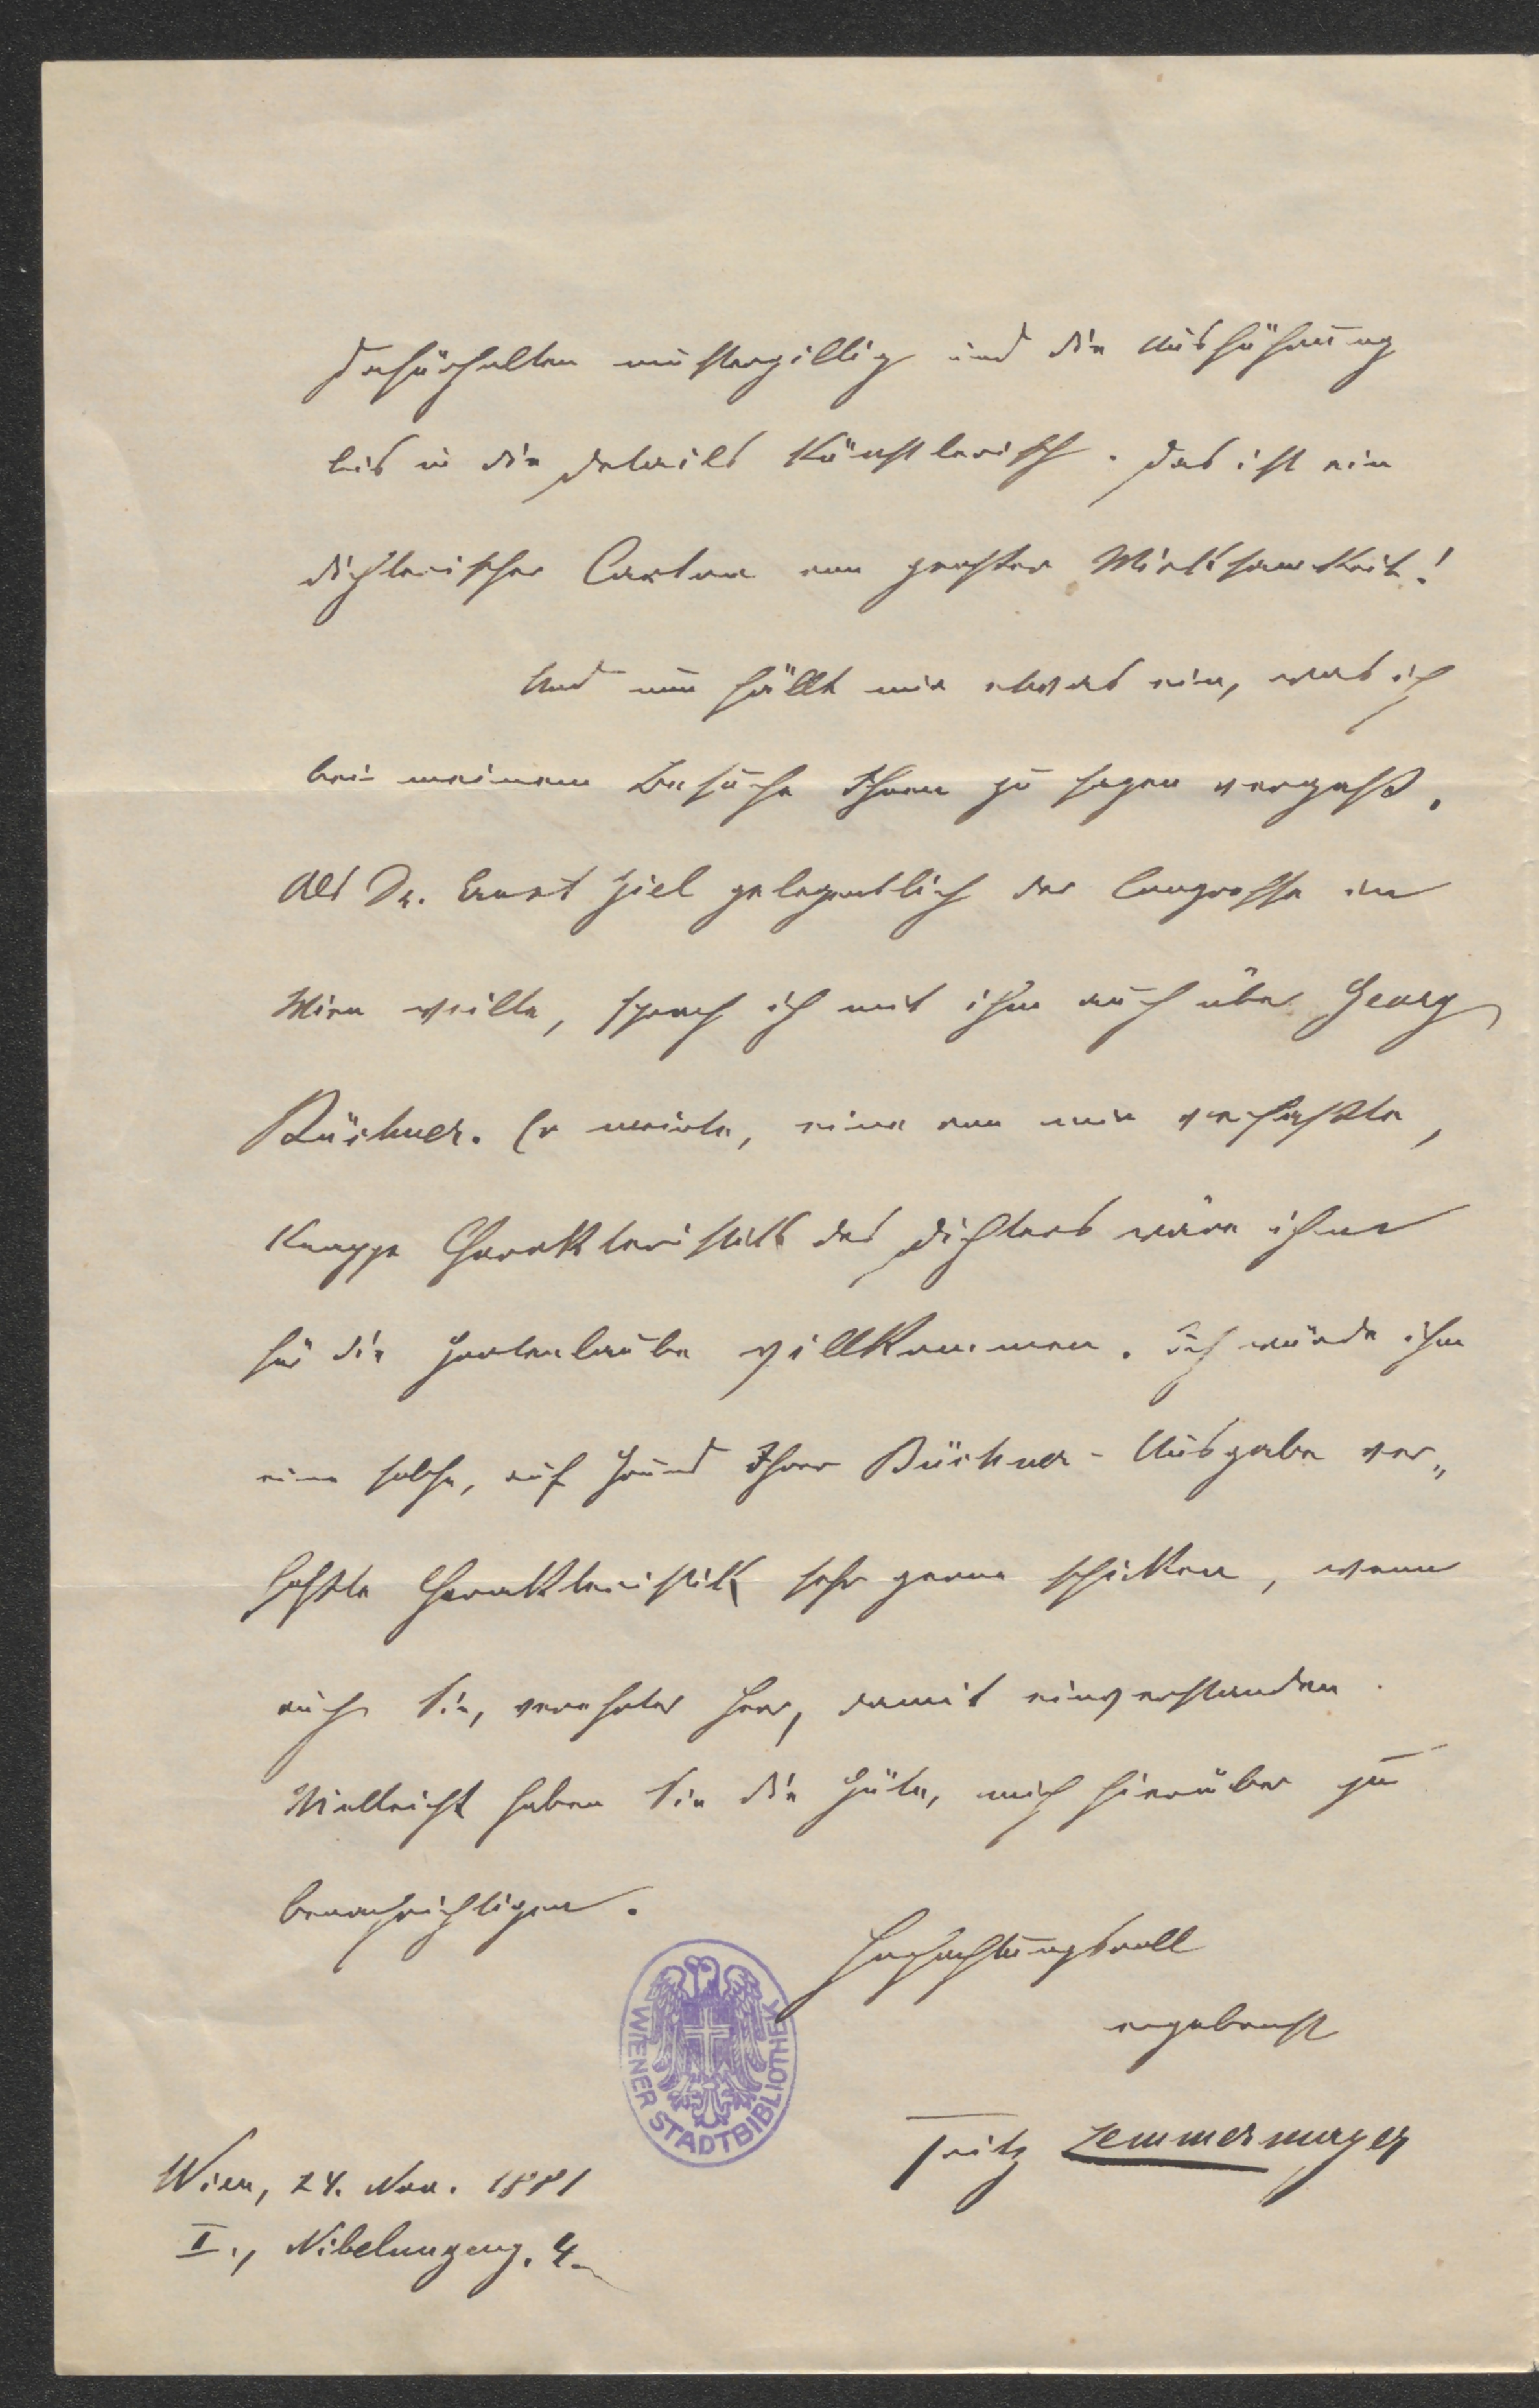 Dafürhalten mustergiltig und die Ausführung
bis in die Details künstlerisch. Das ist ein
dichterischer Carton von grosster Wirksamkeit!
Und nun fällt mir etwas ein, was ich
bei meinem Besuche Ihnen zu sagen vergaß.
Als Dr. Ernst Ziel gelegentlich des Congresse in
Wien weilte, sprach ich mit ihm auch über Georg
Büchner. Er meinte, eine von mir verfaßte,
knappe Charakteristik des Dichters wäre ihm
für die Gartenlaube willkommen. Ich würde ihm
eine solche, auf Grund Ihrer Büchner-Ausgabe ver„
faßte Charakteristik sehr gerne schicken, wenn
auch Sie, verehrter Herr, damit einverstanden.
Vielleicht haben Sie die Güte, mich hierüber zu
benachrichtigen.
Hochachtungsvoll
ergebenst
Fritz Lemmermayer
Wien, 24. Nov. 1881
I., Nibelungeng. 4.
WIENER STADTBIBLIOTHEK